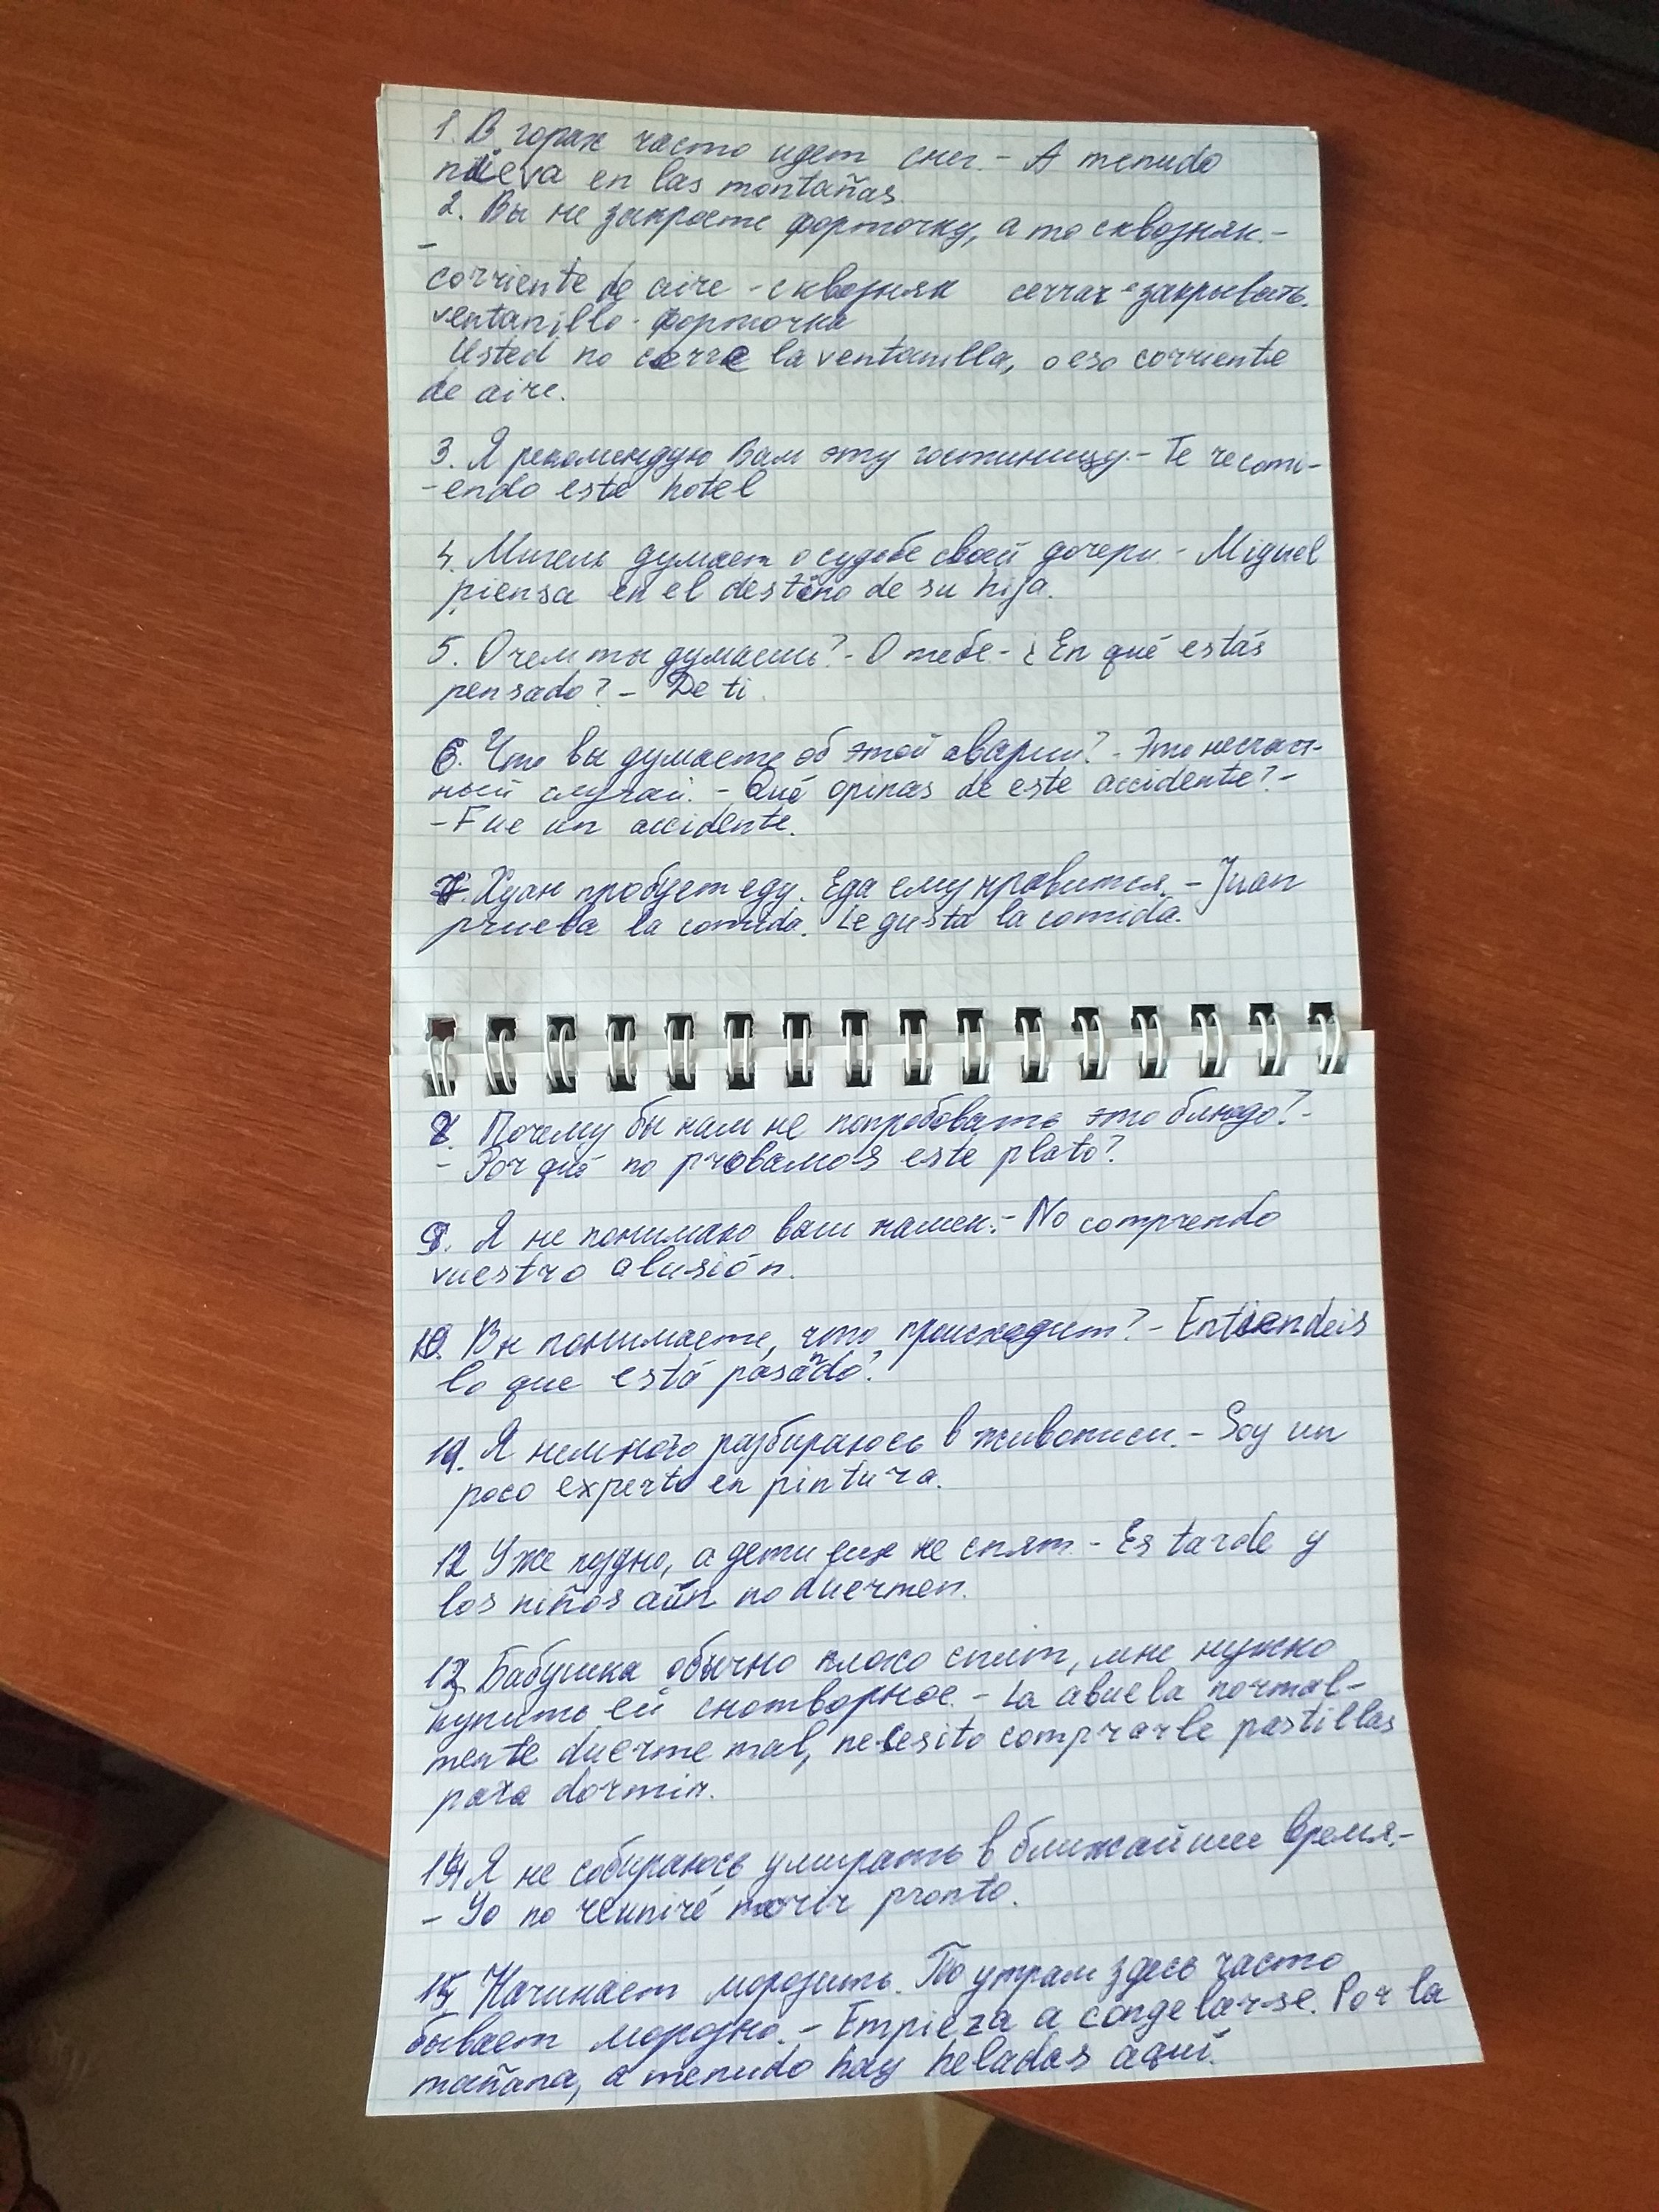 1. В горах часто идет снег. - A menudo
nieva en las montañas.
2. Вы не закроете форточку, а то сквозняк. -
-
corriente de aire - сквозняк cerrar - закрывать
ventanillo - форточка
Usted no cerre la ventanilla, o eso corriente
de aire.
3. Я рекомендую Вам эту гостиницу. - Te recomi-
-endo este hotel
4. Мигель думает о судьбе своей дочери. - Miguel
piensa en el destino de su hija.
5. О чем ты думаешь? - О тебе - ¿En qué estás
pensado? - De ti.
6. Что вы думаете об этой аварии? - Это несчаст-
ный случай. - Qué opinas de este accidente? -
- Fue un accidente.
7. Хуан пробует еду. Еда ему нравится. - Juan
prueba la comida. Le gusta la comida.
8. Почему бы нам не попробовать это блюдо? -
- Por qué no probamos este plato?
9. Я не понимаю ваш намек. - No comprendo
vuestro alusión.
10. Вы понимаете, что происходит? - Entiendeis
lo que está pasando?
11. Я немного разбираюсь в живописи. - Soy un
poco experto en pintura.
12 Уже поздно, а дети еще не спят. - Es tarde y
los niños aún no duermen.
13 Бабушка обычно плохо спит, мне нужно
купить ей снотворное. - La abuela normal-
mente duerme mal, necesito comprarle pastillas
para dormir.
14 Я не собираюсь умирать в ближайшее время. -
- Yo no reuniré morir pronto.
15 Начинает морозить. По утрам здесь часто
бывает морозно. - Empieza a congelar-se. Por la
mañana, a menudo hay heladas aquí.